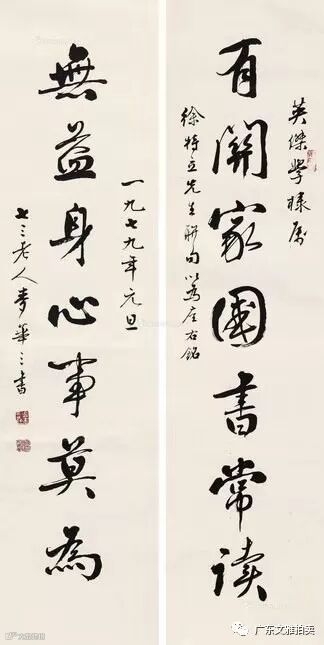 英傑學棣屬
有關家國書常读
徐特立先生聯句以为座右銘
一九七九年元旦
無益身心事莫為
七三老人麥華三書
广东文雅拍卖